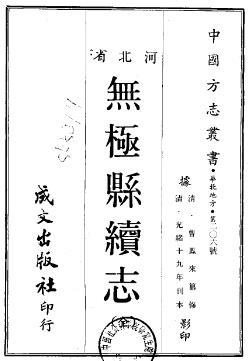 中國方志叢書·華北地方·第二〇六號
據清·曹鳳來纂修
清·光緒十九年刊本影印
河北省
無極縣續志
成文出版社印行